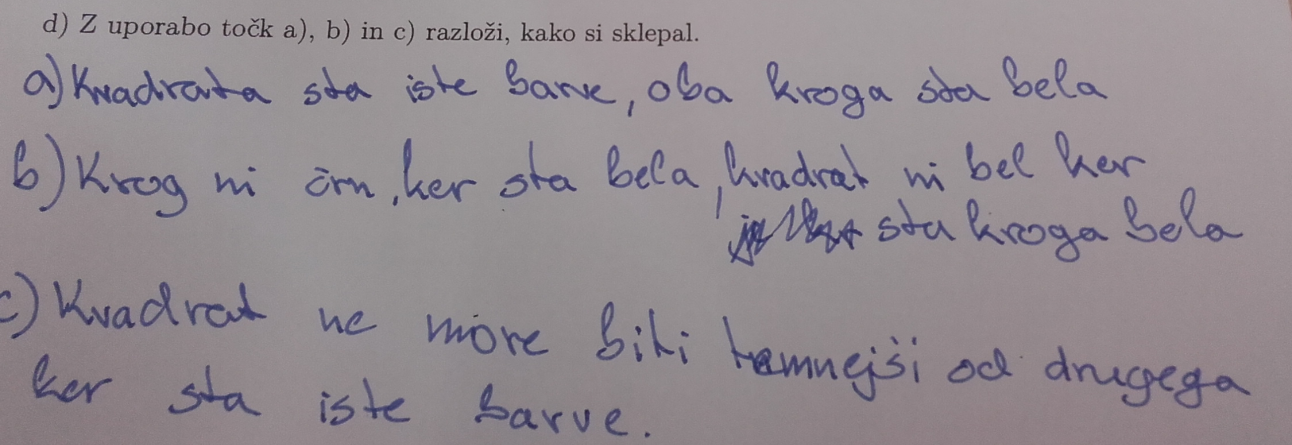 d) Z uporabo točk a), b) in c) razloži, kako si sklepal.
a) Kvadrata sta iste barve, oba kroga sta bela
b) Krog ni črn, ker sta bela, kvadrat ni bel ker
sta kroga bela
c) Kvadrat ne more biti temnejši od drugega
ker sta iste barve.